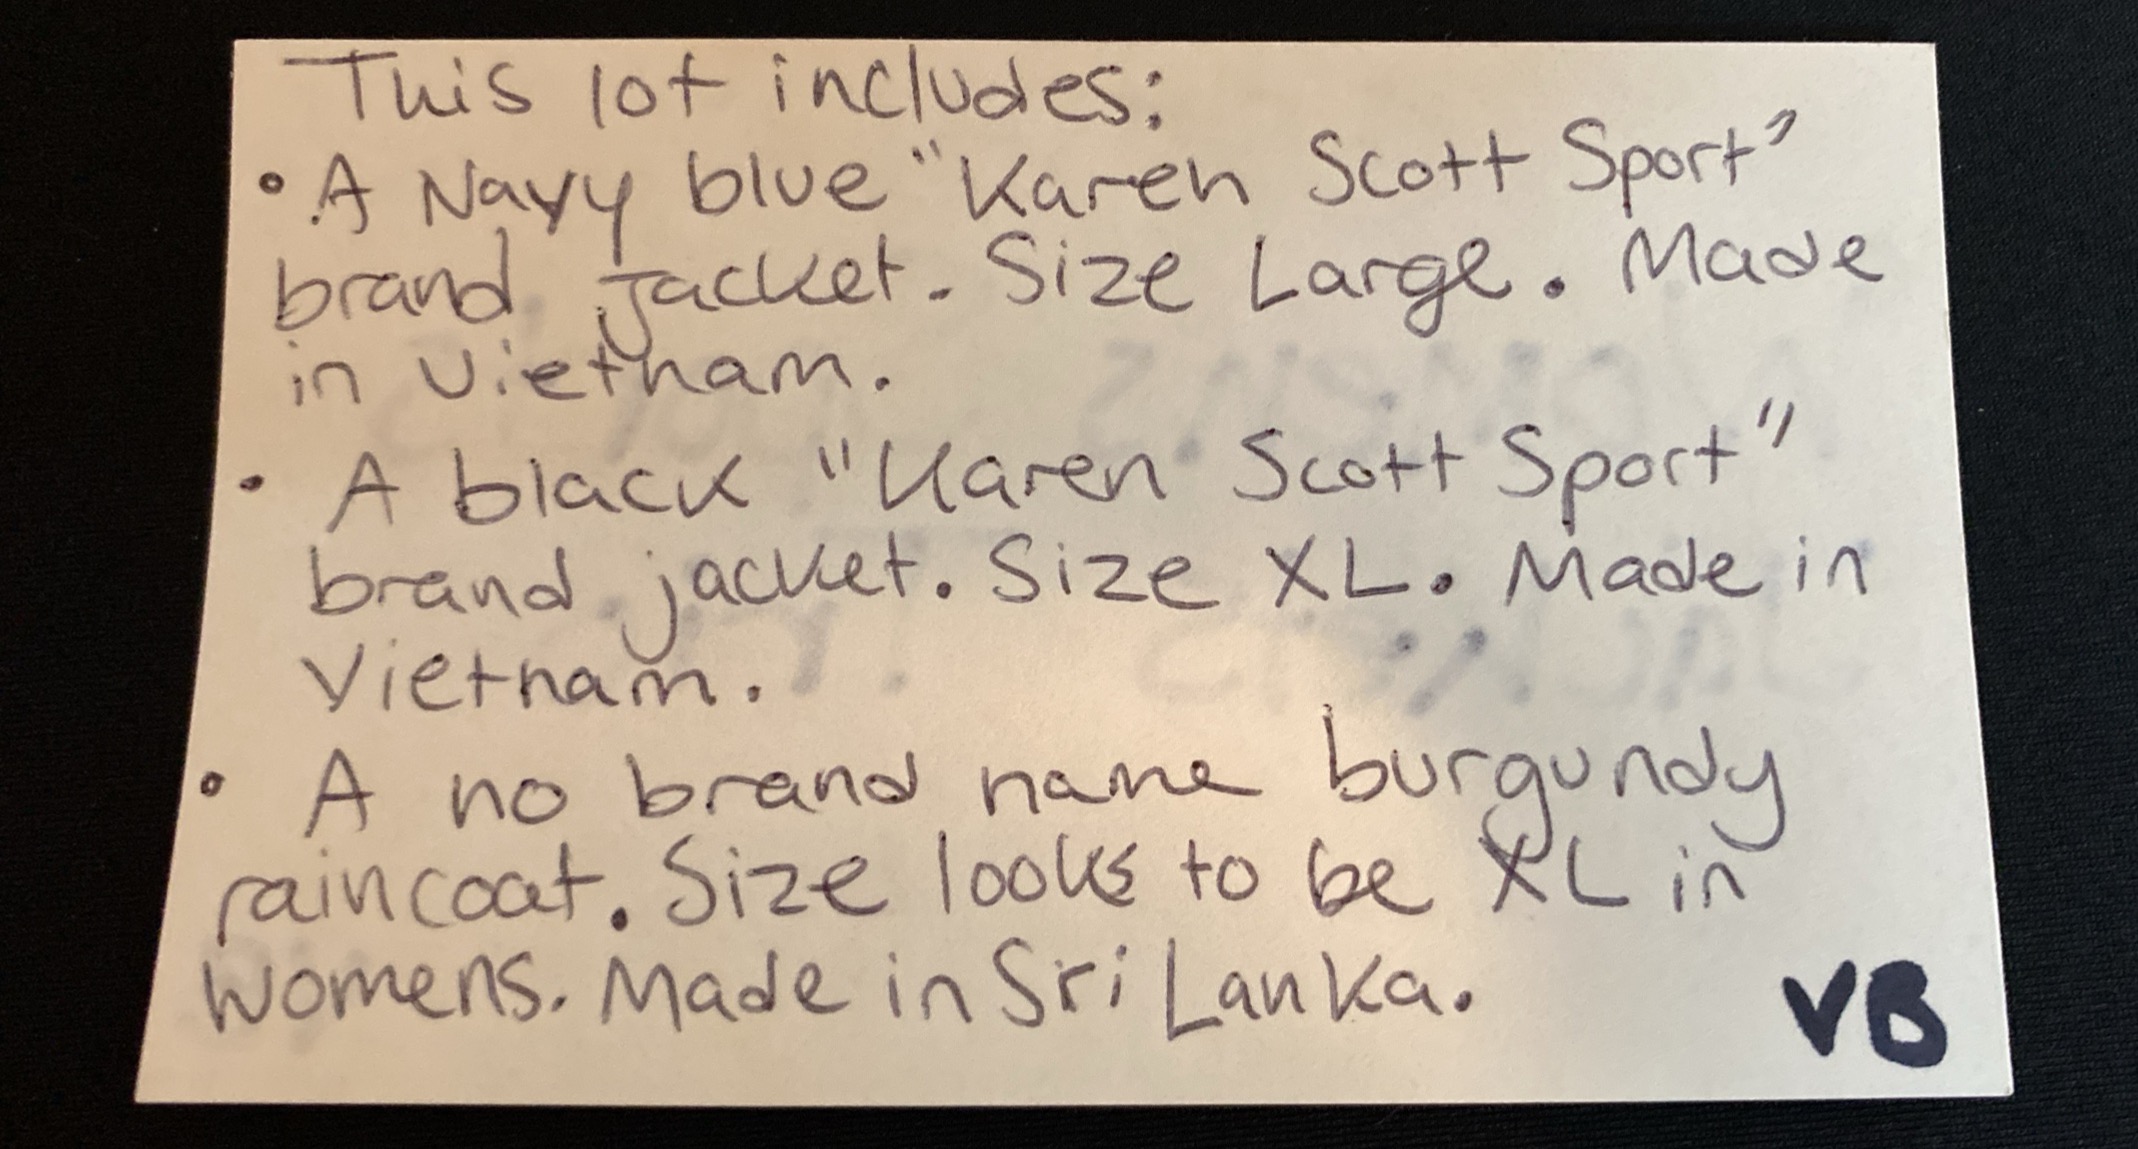 This lot includes:
• A Navy blue "Karen Scott Sport"
brand Jacket. Size Large. Made
in Vietnam.
• A black "Karen Scott Sport"
brand jacket. Size XL. Made in
Vietnam.
• A no brand name burgundy
raincoat. Size looks to be XL in
womens. Made in Sri Lanka.
VB